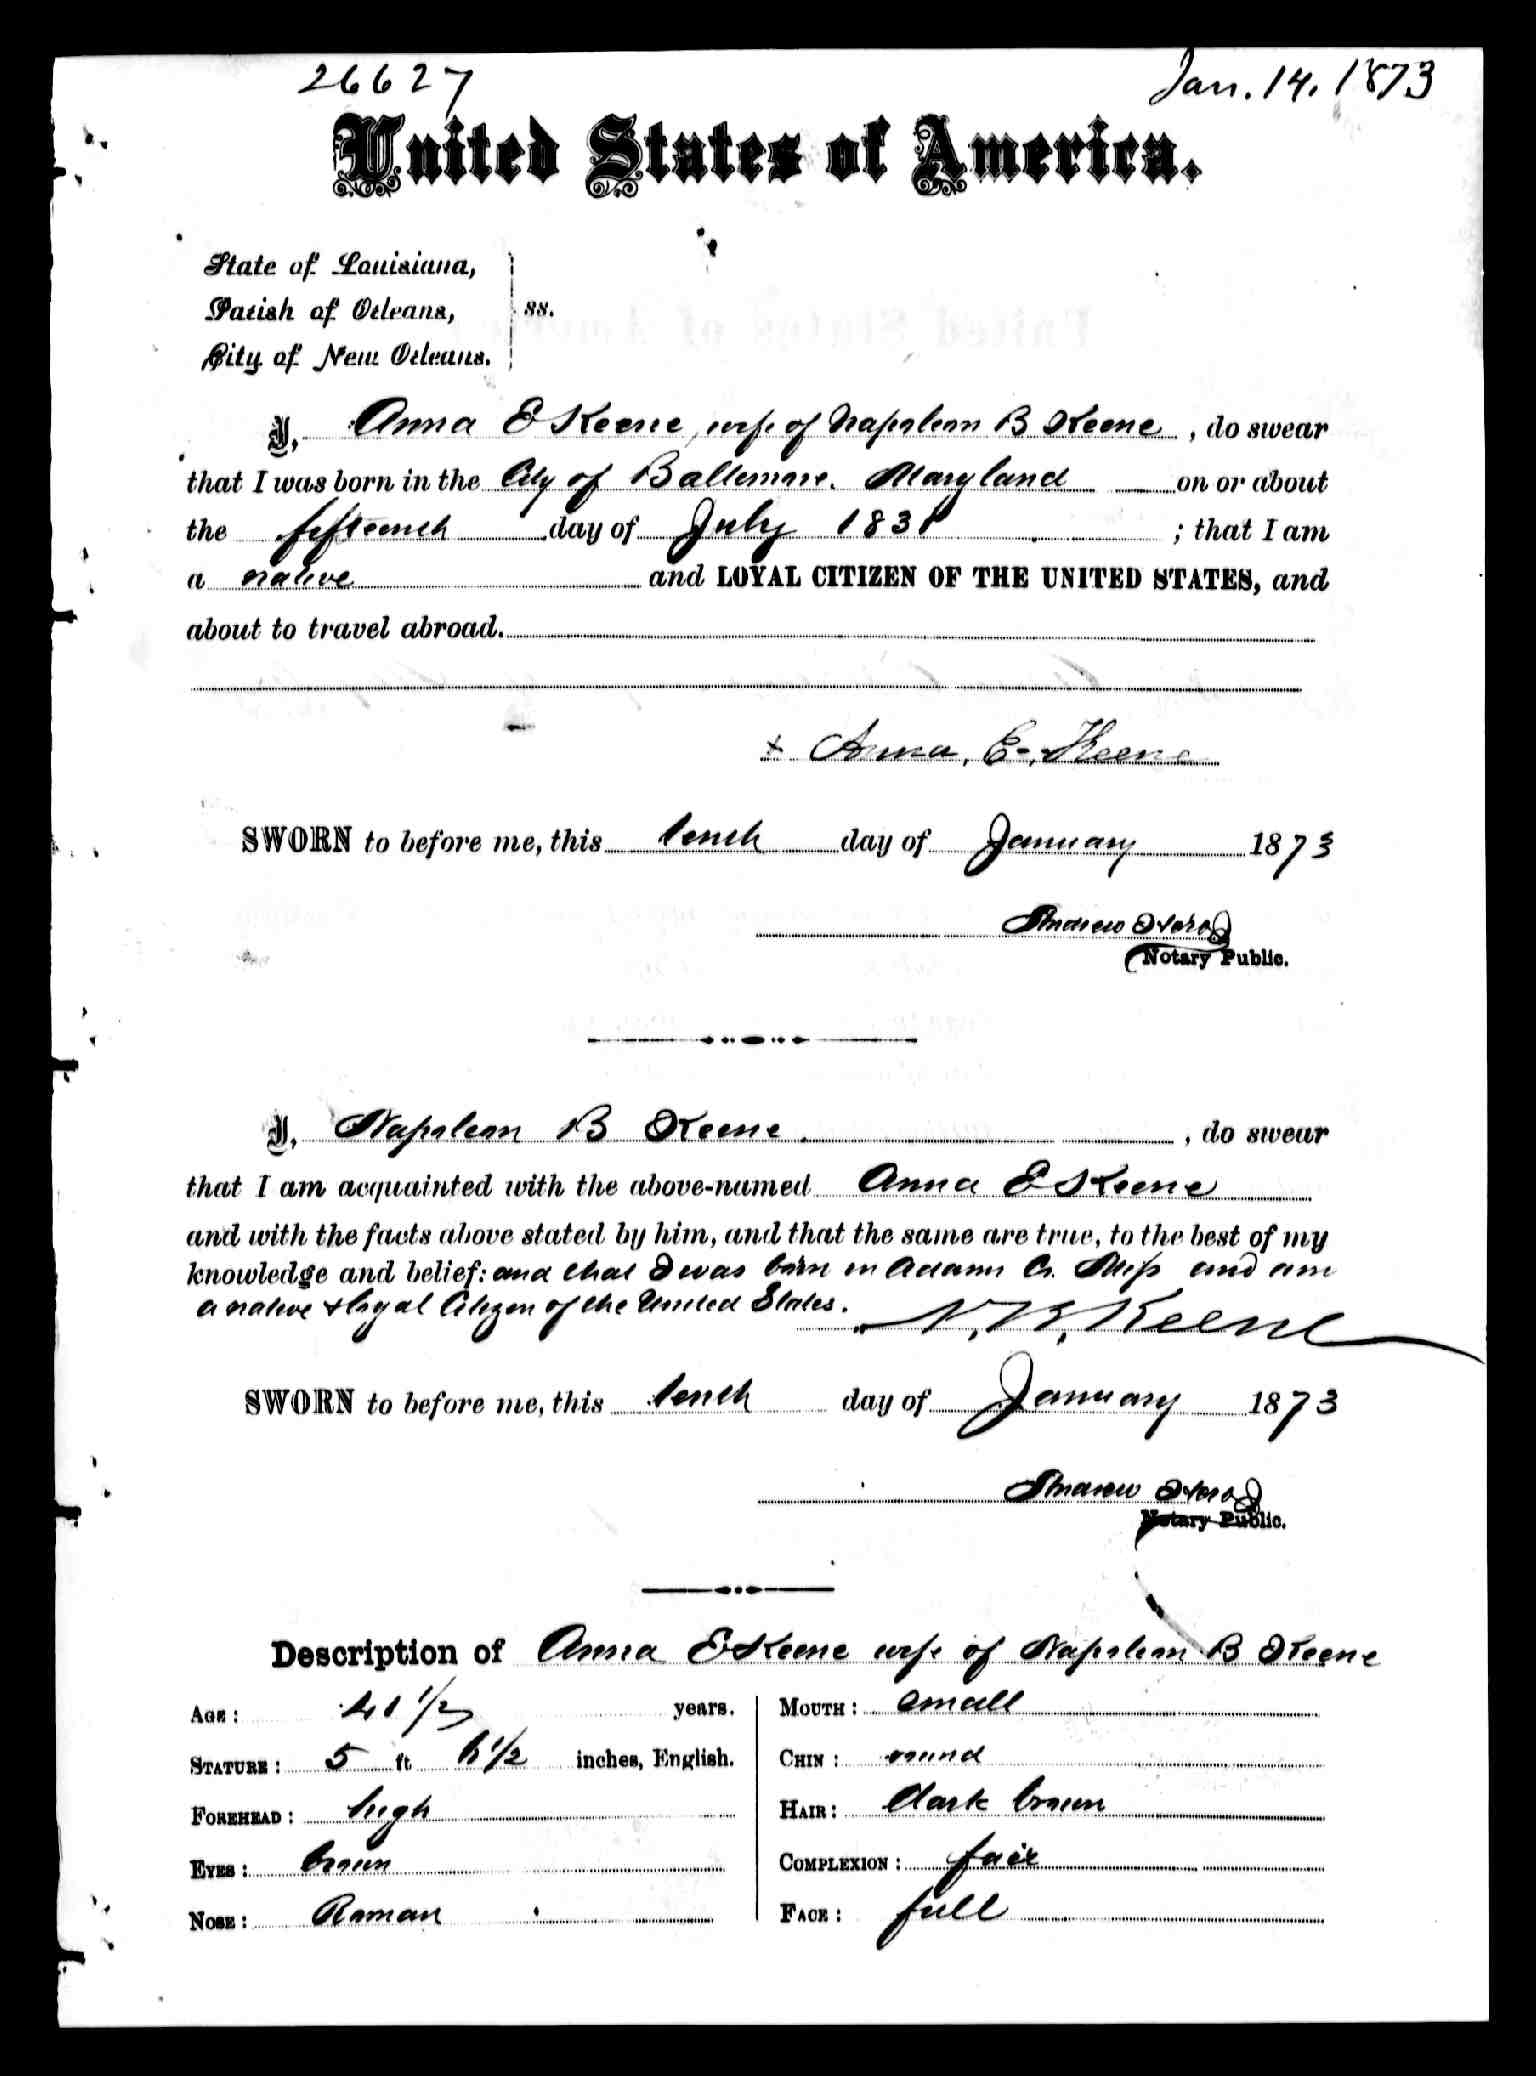 26627
Jan. 14, 1873
United States of America.
State of Louisiana,
Parish of Orleans,
City of New Orleans.
ss.
I, Anna E Keene, wife of Napoleon B Keene, do swear
that I was born in the City of Baltimore, Maryland on or about
the fifteenth day of July 1831 ; that I am
a native and LOYAL CITIZEN OF THE UNITED STATES, and
about to travel abroad.
x Anna, E, Keene
SWORN to before me, this tenth day of January 1873
Andrew Hero Jr
Notary Public.
I, Napoleon B Keene, do swear
that I am acquainted with the above-named Anna E Keene
and with the facts above stated by him, and that the same are true, to the best of my
knowledge and belief: and that I was born in Adams Co. Miss and am
a native & loyal Citizen of the United States.
N. B. Keene
SWORN to before me, this tenth day of January 1873
Andrew Hero Jr
Notary Public.
Description of Anna E Keene wife of Napoleon B Keene
AGE: 41 1/2 years.
STATURE: 5 ft 1/2 inches, English.
FOREHEAD: high
EYES: brown
NOSE: Roman
MOUTH: small
CHIN: round
HAIR: dark brown
COMPLEXION: fair
FACE: full